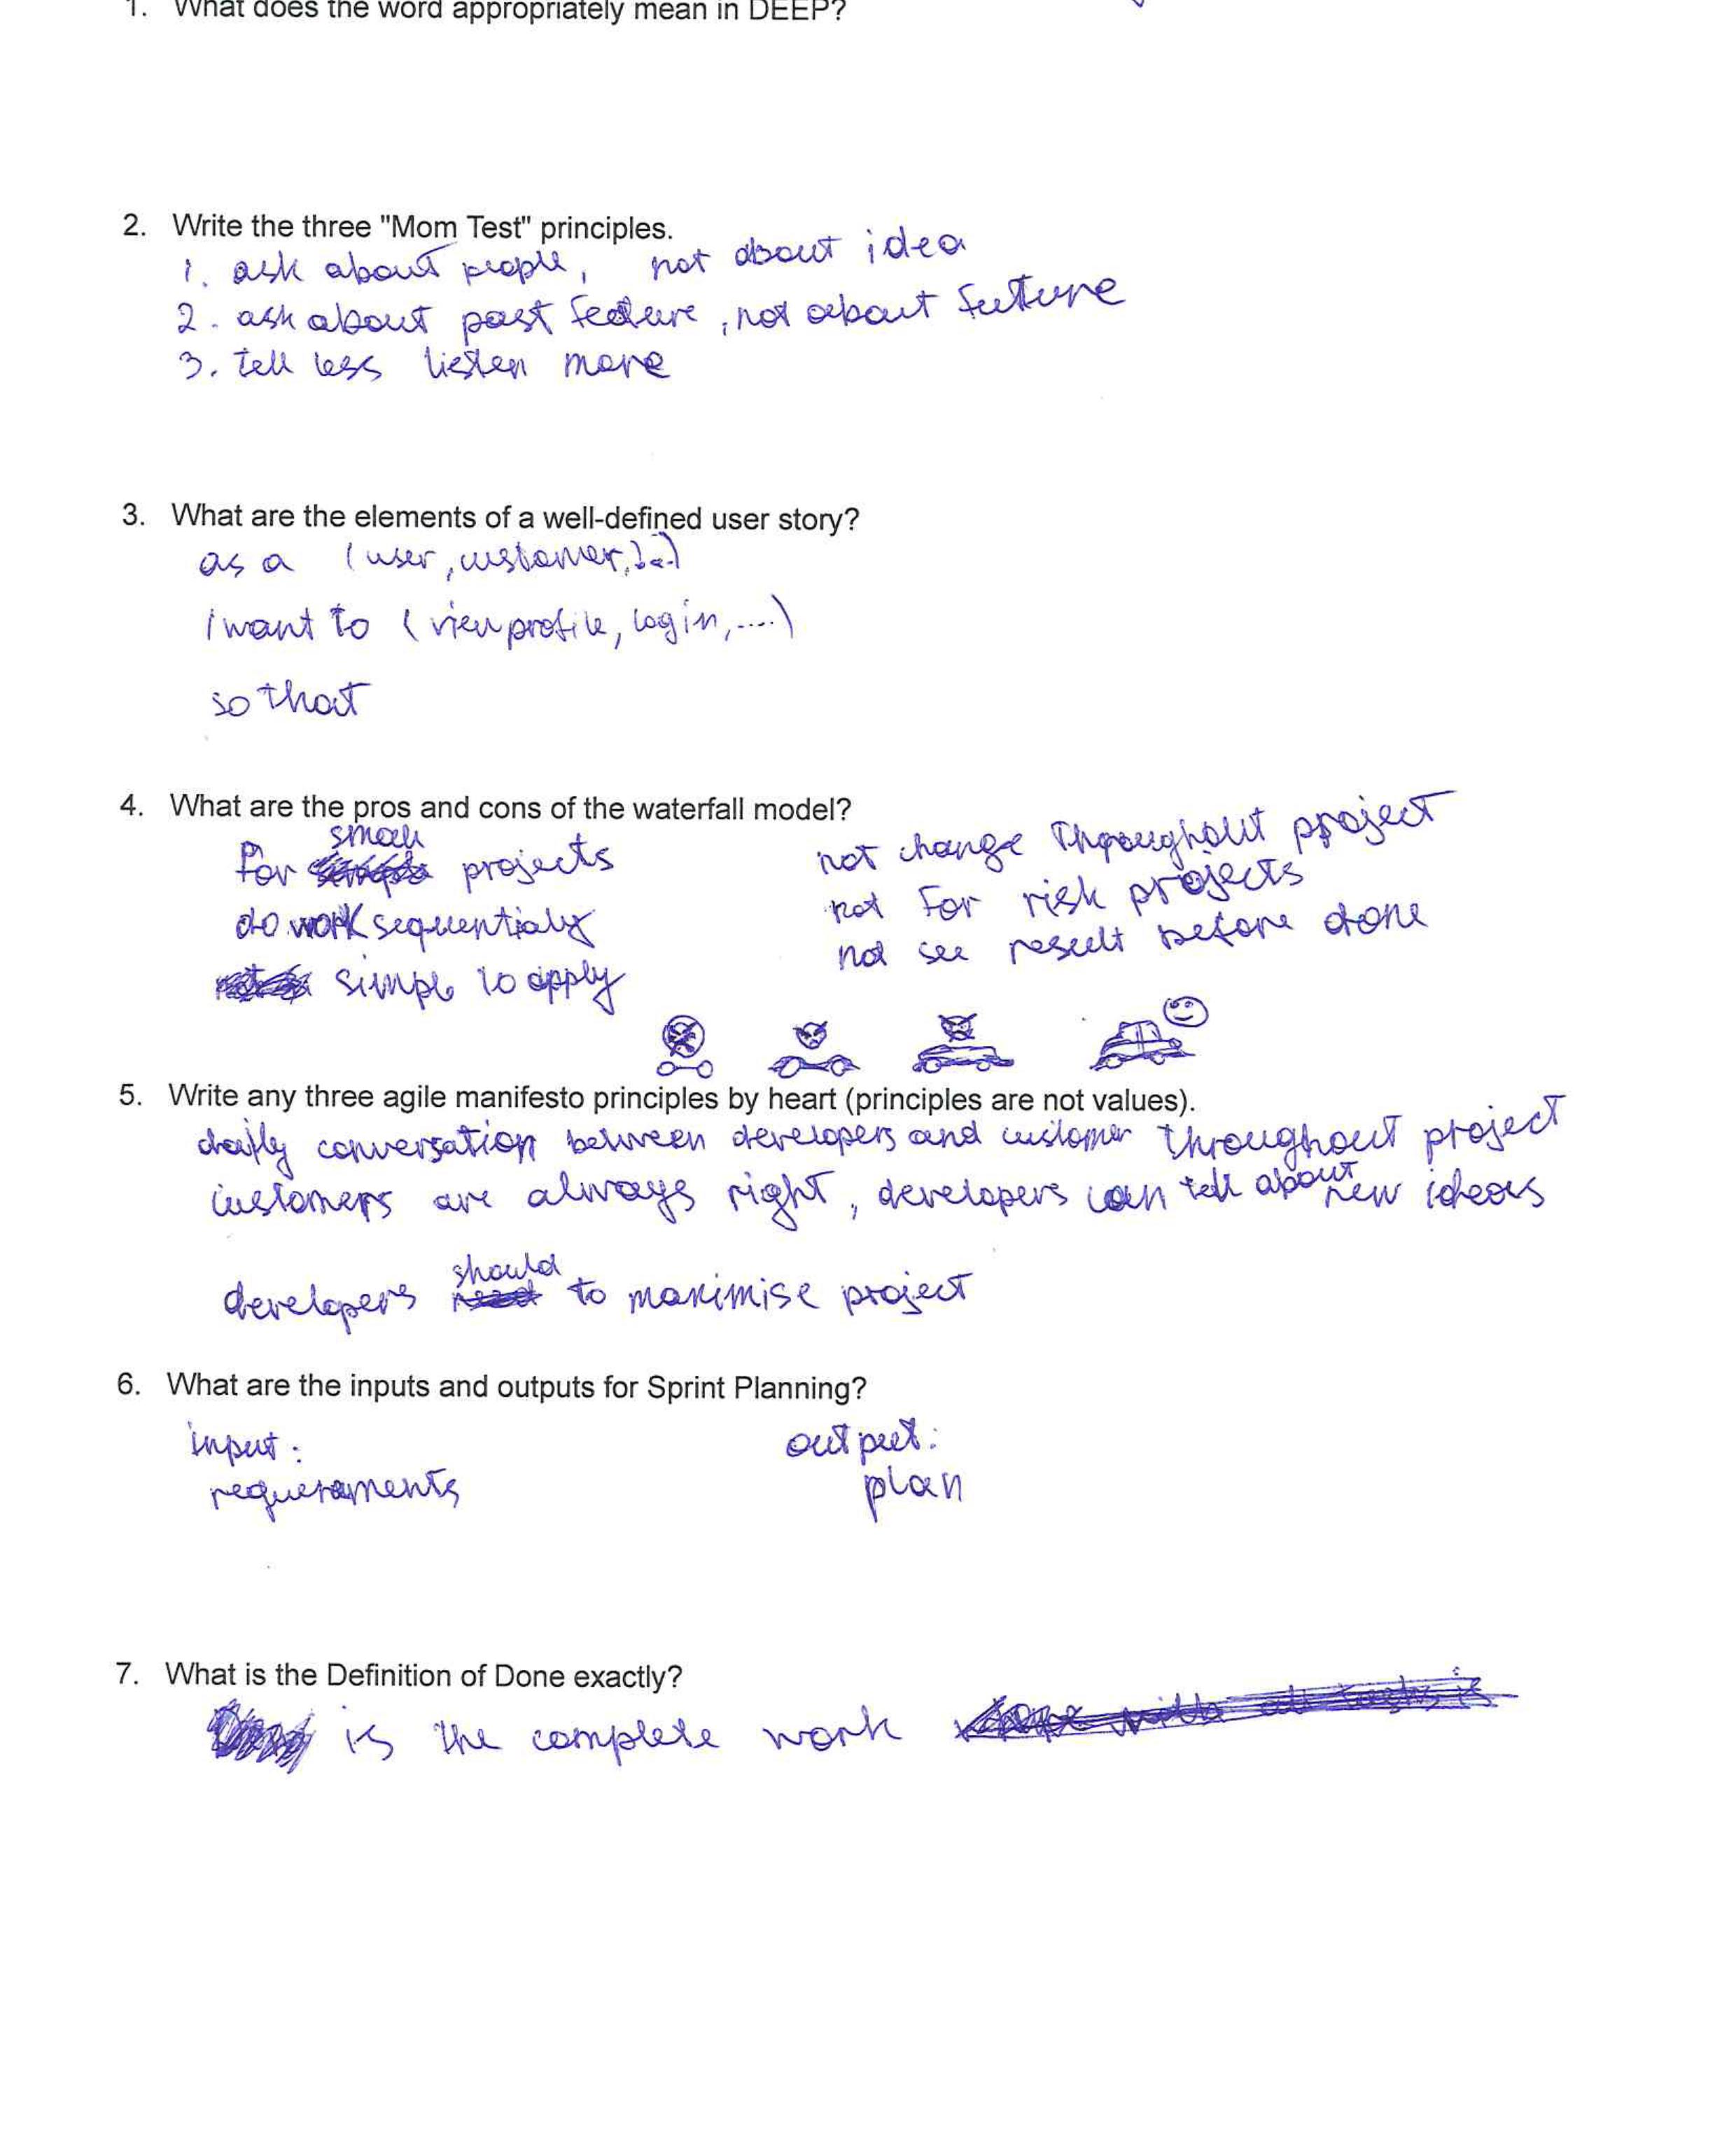 1. What does the word appropriately mean in DEEP?
2. Write the three "Mom Test" principles.
1. ask about people, not about idea
2. ask about past feature, not about future
3. tell less listen more
3. What are the elements of a well-defined user story?
as a (user, customer, ...)
I want to (view profile, login, ....)
so that
4. What are the pros and cons of the waterfall model?
For small projects
do work sequentialy
simple to apply
not change throughout project
not for risk projects
not see result before done
5. Write any three agile manifesto principles by heart (principles are not values).
daily conversation between developers and customer throughout project
customers are always right, developers can tell about new ideas
developers should to maximise project
6. What are the inputs and outputs for Sprint Planning?
input: output:
requeraments plan
7. What is the Definition of Done exactly?
is the complete work